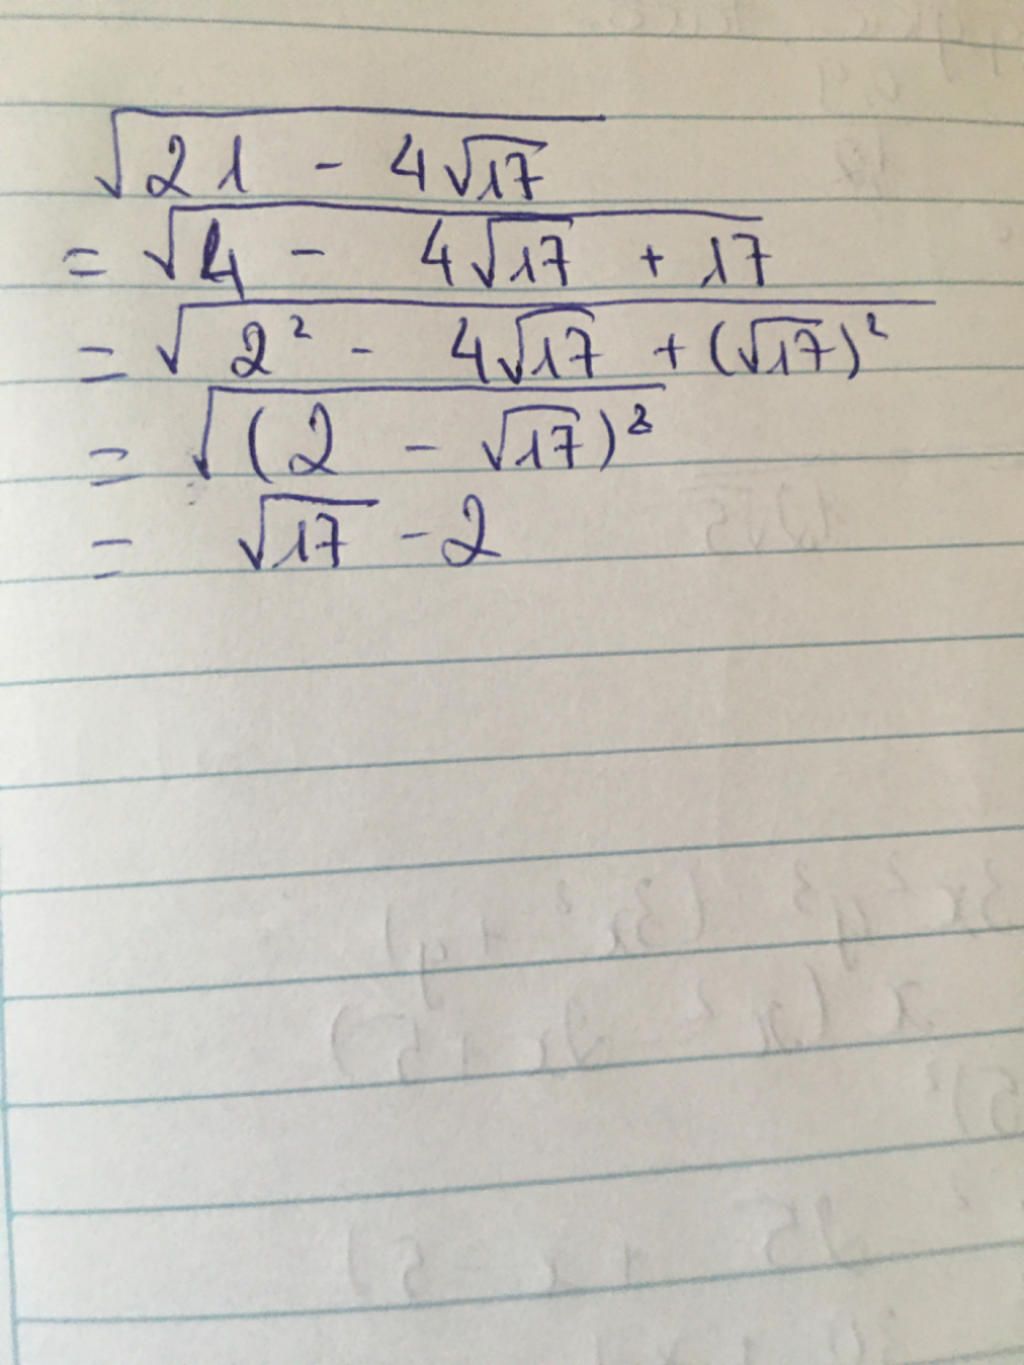 √(21 - 4√17)
= √(4 - 4√17 + 17)
= √(2² - 4√17 + (√17)²)
= √((2 - √17)²)
= √17 - 2